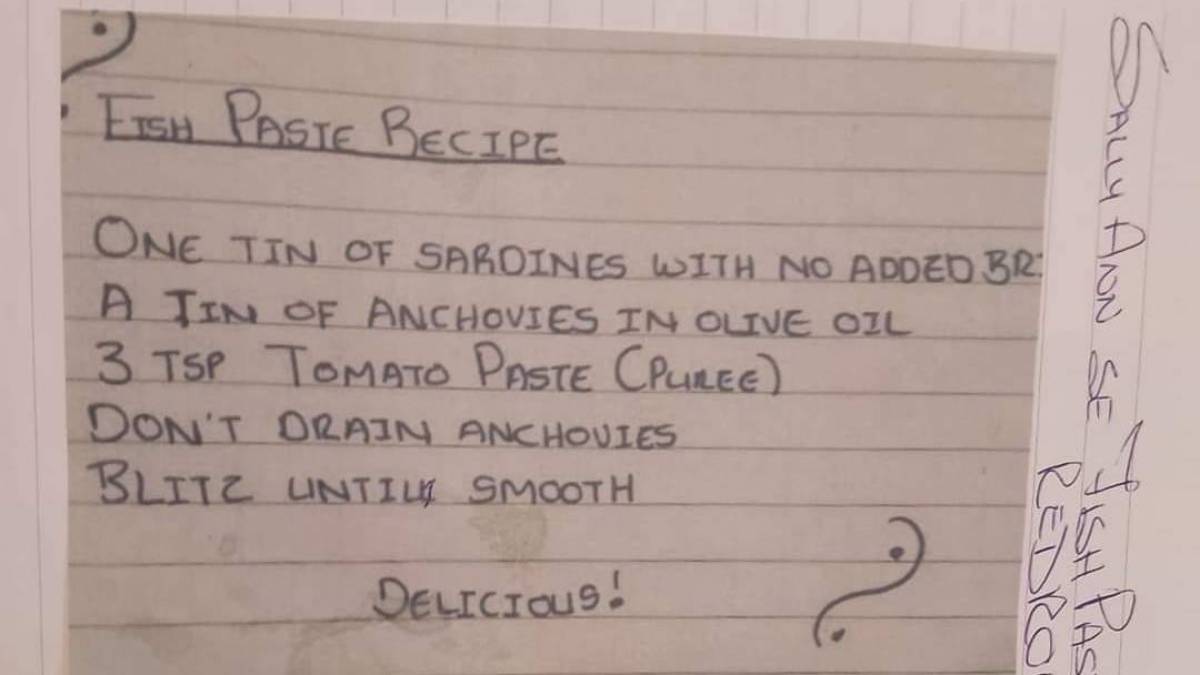 FISH PASTE RECIPE
ONE TIN OF SARDINES WITH NO ADDED
A TIN OF ANCHOVIES IN OLIVE OIL
3 TSP TOMATO PASTE (PUREE)
DON'T DRAIN ANCHOVIES
BLITZ UNTIL SMOOTH
DELICIOUS!
SALLY ANN SE FISH